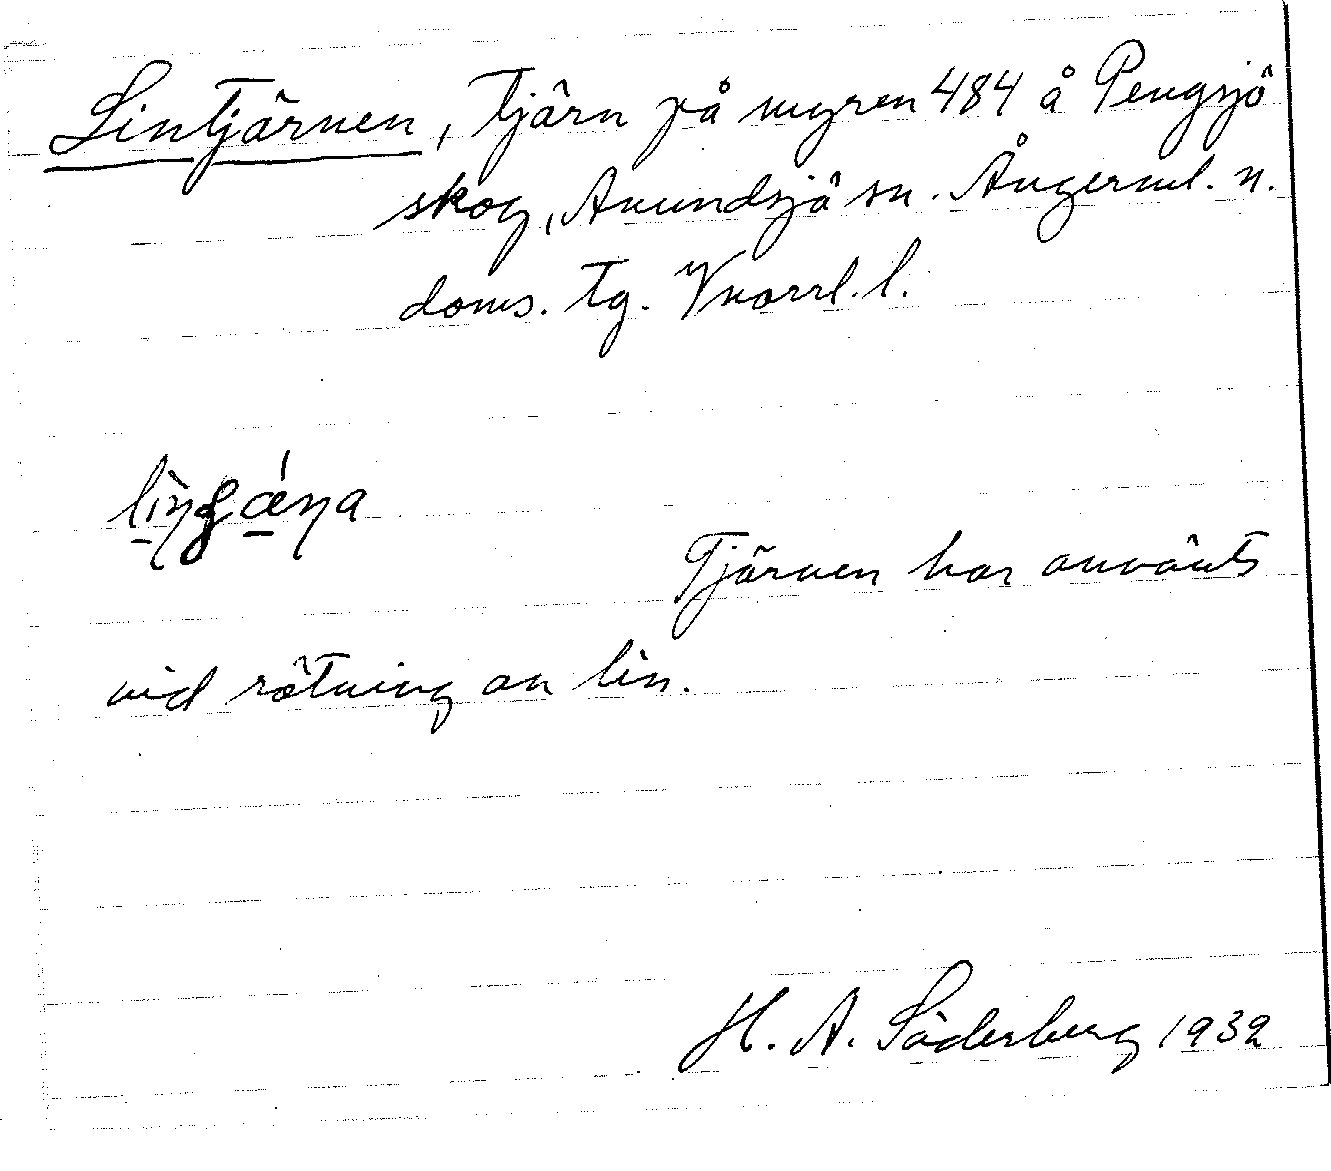 Lintjärnen, tjärn på myren 484 å Pengsjö
skog, Anundsjö sn. Ångerml. n.
doms. tg. Vnorrl. l.
Tjärnen har använts
vid rötning av lin.
H. A. Söderberg 1932